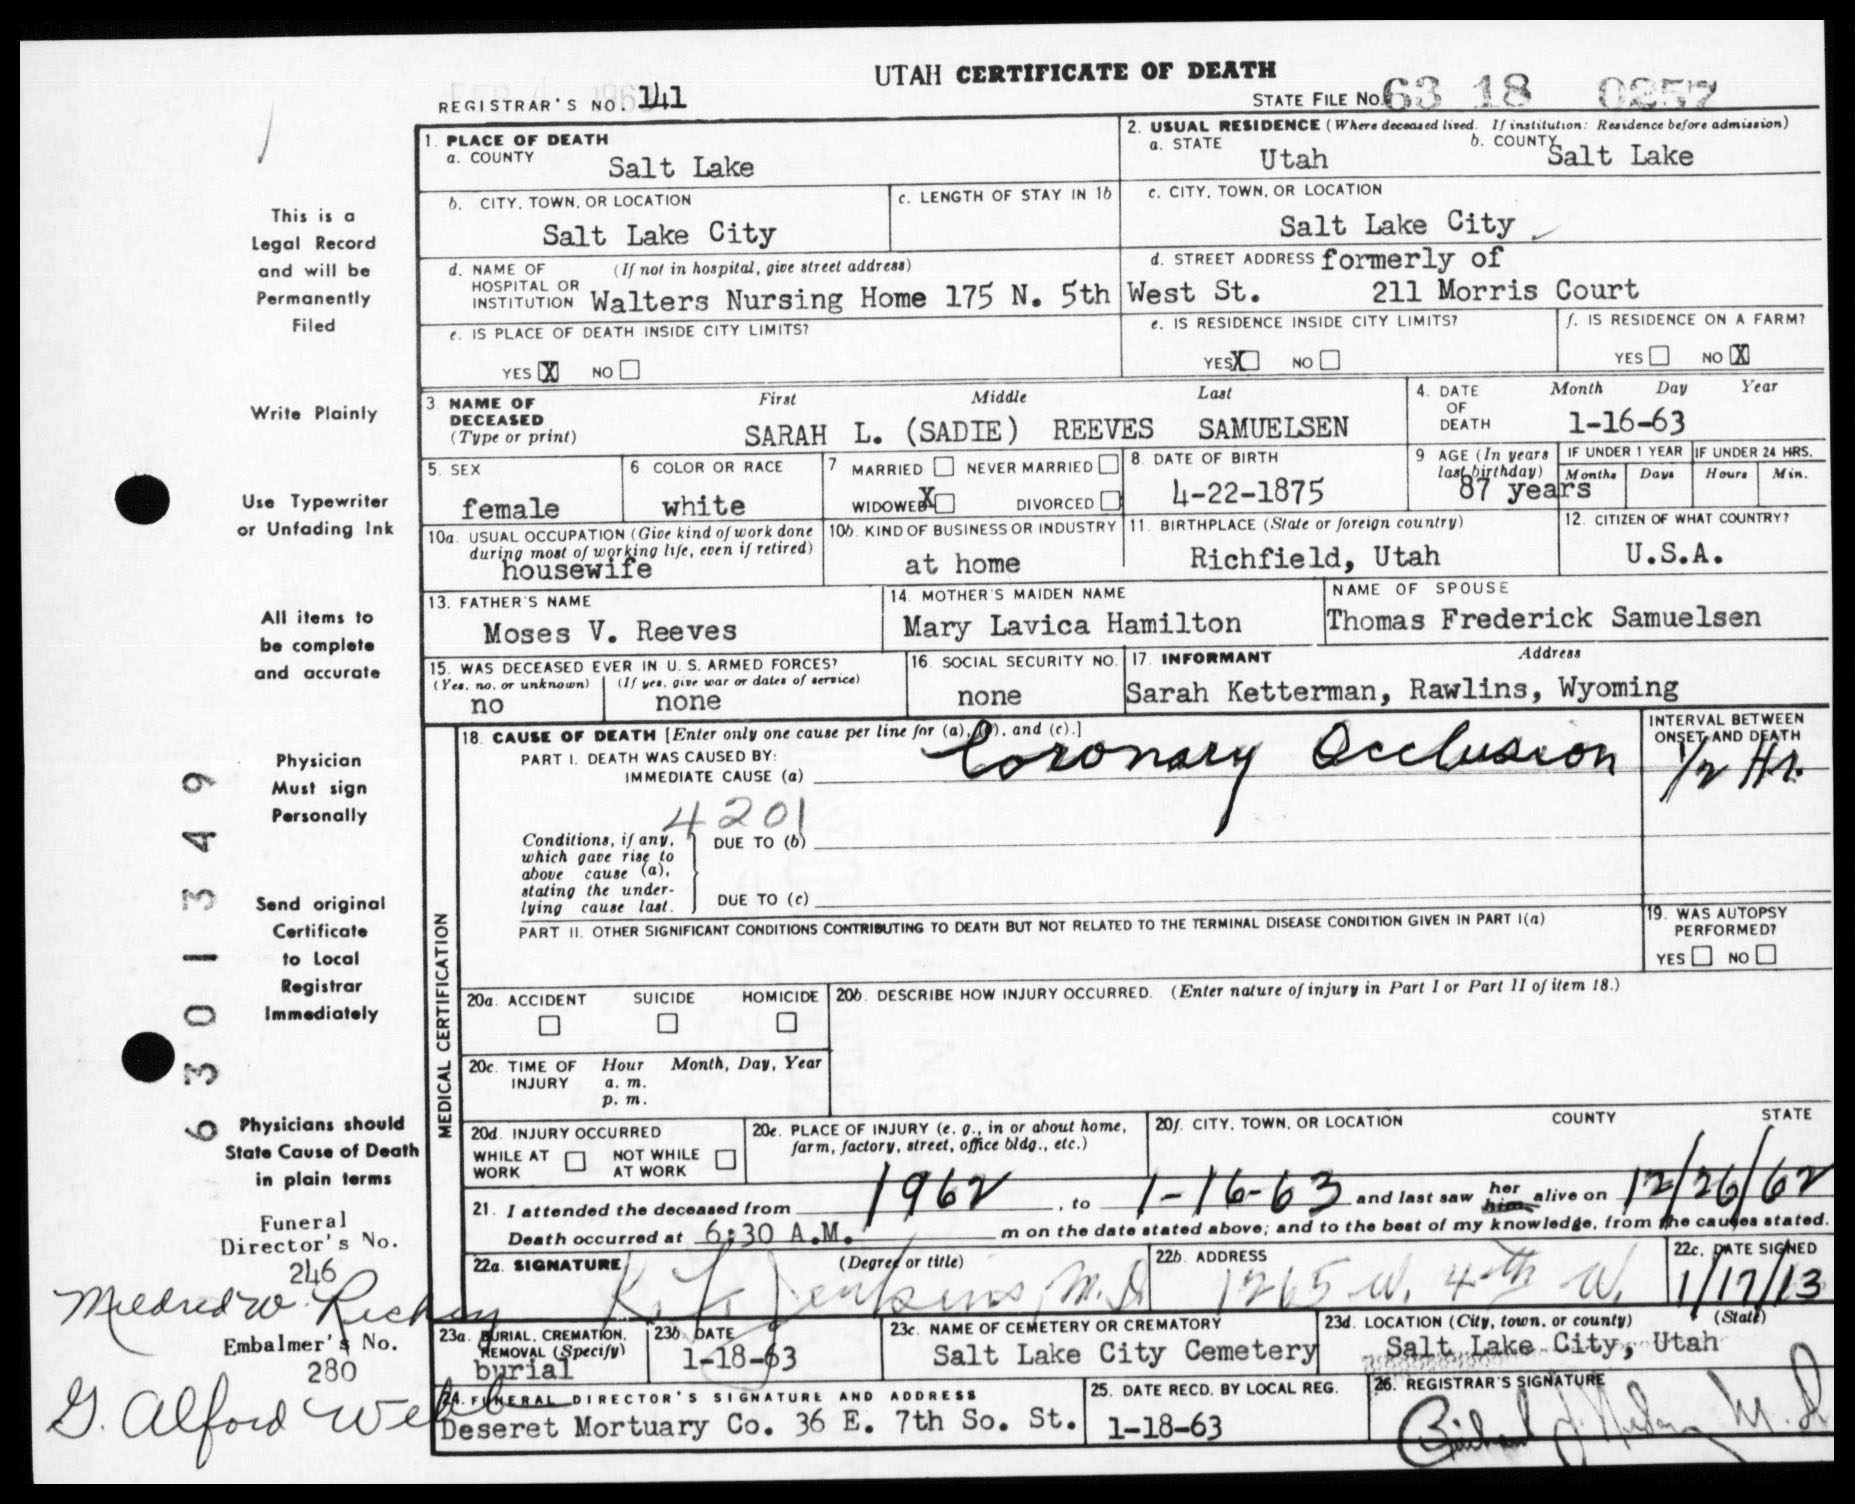 UTAH CERTIFICATE OF DEATH
REGISTRAR'S NO. 141
STATE FILE NO. 63 18 0257
1. PLACE OF DEATH
a. COUNTY
Salt Lake
2. USUAL RESIDENCE (Where deceased lived. If institution: Residence before admission)
a. STATE
Utah
b. COUNTY
Salt Lake
b. CITY, TOWN, OR LOCATION
Salt Lake City
c. LENGTH OF STAY IN 1b
c. CITY, TOWN, OR LOCATION
Salt Lake City
d. NAME OF HOSPITAL OR INSTITUTION (If not in hospital, give street address)
Walters Nursing Home 175 N. 5th West St.
d. STREET ADDRESS formerly of
211 Morris Court
e. IS PLACE OF DEATH INSIDE CITY LIMITS?
YES X NO
e. IS RESIDENCE INSIDE CITY LIMITS?
YES X NO
f. IS RESIDENCE ON A FARM?
YES NO X
3. NAME OF DECEASED (Type or print)
First Middle Last
SARAH L. (SADIE) REEVES SAMUELSEN
4. DATE OF DEATH
Month Day Year
1-16-63
5. SEX
female
6. COLOR OR RACE
white
7 MARRIED NEVER MARRIED
WIDOWED X DIVORCED
8. DATE OF BIRTH
4-22-1875
9 AGE (In years last birthday)
87 years
IF UNDER 1 YEAR
Months Days
IF UNDER 24 HRS.
Hours Min.
10a. USUAL OCCUPATION (Give kind of work done during most of working life, even if retired)
housewife
10b. KIND OF BUSINESS OR INDUSTRY
at home
11. BIRTHPLACE (State or foreign country)
Richfield, Utah
12. CITIZEN OF WHAT COUNTRY?
U.S.A.
13. FATHER'S NAME
Moses V. Reeves
14. MOTHER'S MAIDEN NAME
Mary Lavica Hamilton
NAME OF SPOUSE
Thomas Frederick Samuelsen
15. WAS DECEASED EVER IN U. S. ARMED FORCES?
(Yes, no, or unknown) (If yes, give war or dates of service)
no none
16. SOCIAL SECURITY NO.
none
17. INFORMANT Address
Sarah Ketterman, Rawlins, Wyoming
MEDICAL CERTIFICATION
18. CAUSE OF DEATH [Enter only one cause per line for (a), (b), and (c).]
PART I. DEATH WAS CAUSED BY:
IMMEDIATE CAUSE (a) Coronary Occlusion
INTERVAL BETWEEN ONSET AND DEATH
1/2 Hr.
4201
Conditions, if any, which gave rise to above cause (a), stating the underlying cause last.
DUE TO (b)
DUE TO (c)
PART II. OTHER SIGNIFICANT CONDITIONS CONTRIBUTING TO DEATH BUT NOT RELATED TO THE TERMINAL DISEASE CONDITION GIVEN IN PART I(a)
19. WAS AUTOPSY PERFORMED?
YES NO
20a. ACCIDENT SUICIDE HOMICIDE
20b. DESCRIBE HOW INJURY OCCURRED. (Enter nature of injury in Part I or Part II of item 18.)
20c. TIME OF INJURY Hour Month, Day, Year
a. m.
p. m.
20d. INJURY OCCURRED
WHILE AT WORK NOT WHILE AT WORK
20e. PLACE OF INJURY (e. g., in or about home, farm, factory, street, office bldg., etc.)
20f. CITY, TOWN, OR LOCATION COUNTY STATE
21. I attended the deceased from 1962, to 1-16-63 and last saw her him alive on 12/26/62
Death occurred at 6:30 A.M. m on the date stated above; and to the best of my knowledge, from the causes stated.
22a. SIGNATURE (Degree or title)
Jenkins, M.D.
22b. ADDRESS
1265 W. 4th W.
22c. DATE SIGNED
1/17/13
23a. BURIAL, CREMATION, REMOVAL (Specify)
burial
23b. DATE
1-18-63
23c. NAME OF CEMETERY OR CREMATORY
Salt Lake City Cemetery
23d. LOCATION (City, town, or county) (State)
Salt Lake City, Utah
24. FUNERAL DIRECTOR'S SIGNATURE AND ADDRESS
Deseret Mortuary Co. 36 E. 7th So. St.
25. DATE RECD. BY LOCAL REG.
1-18-63
26. REGISTRAR'S SIGNATURE
Richard M.D.
This is a
Legal Record
and will be
Permanently
Filed
Write Plainly
Use Typewriter
or Unfading Ink
All items to
be complete
and accurate
Physician
Must sign
Personally
Send original
Certificate
to Local
Registrar
Immediately
Physicians should
State Cause of Death
in plain terms
Funeral
Director's No.
246
Mildred W. Richey
Embalmer's No.
280
G. Alford Webb
6301349